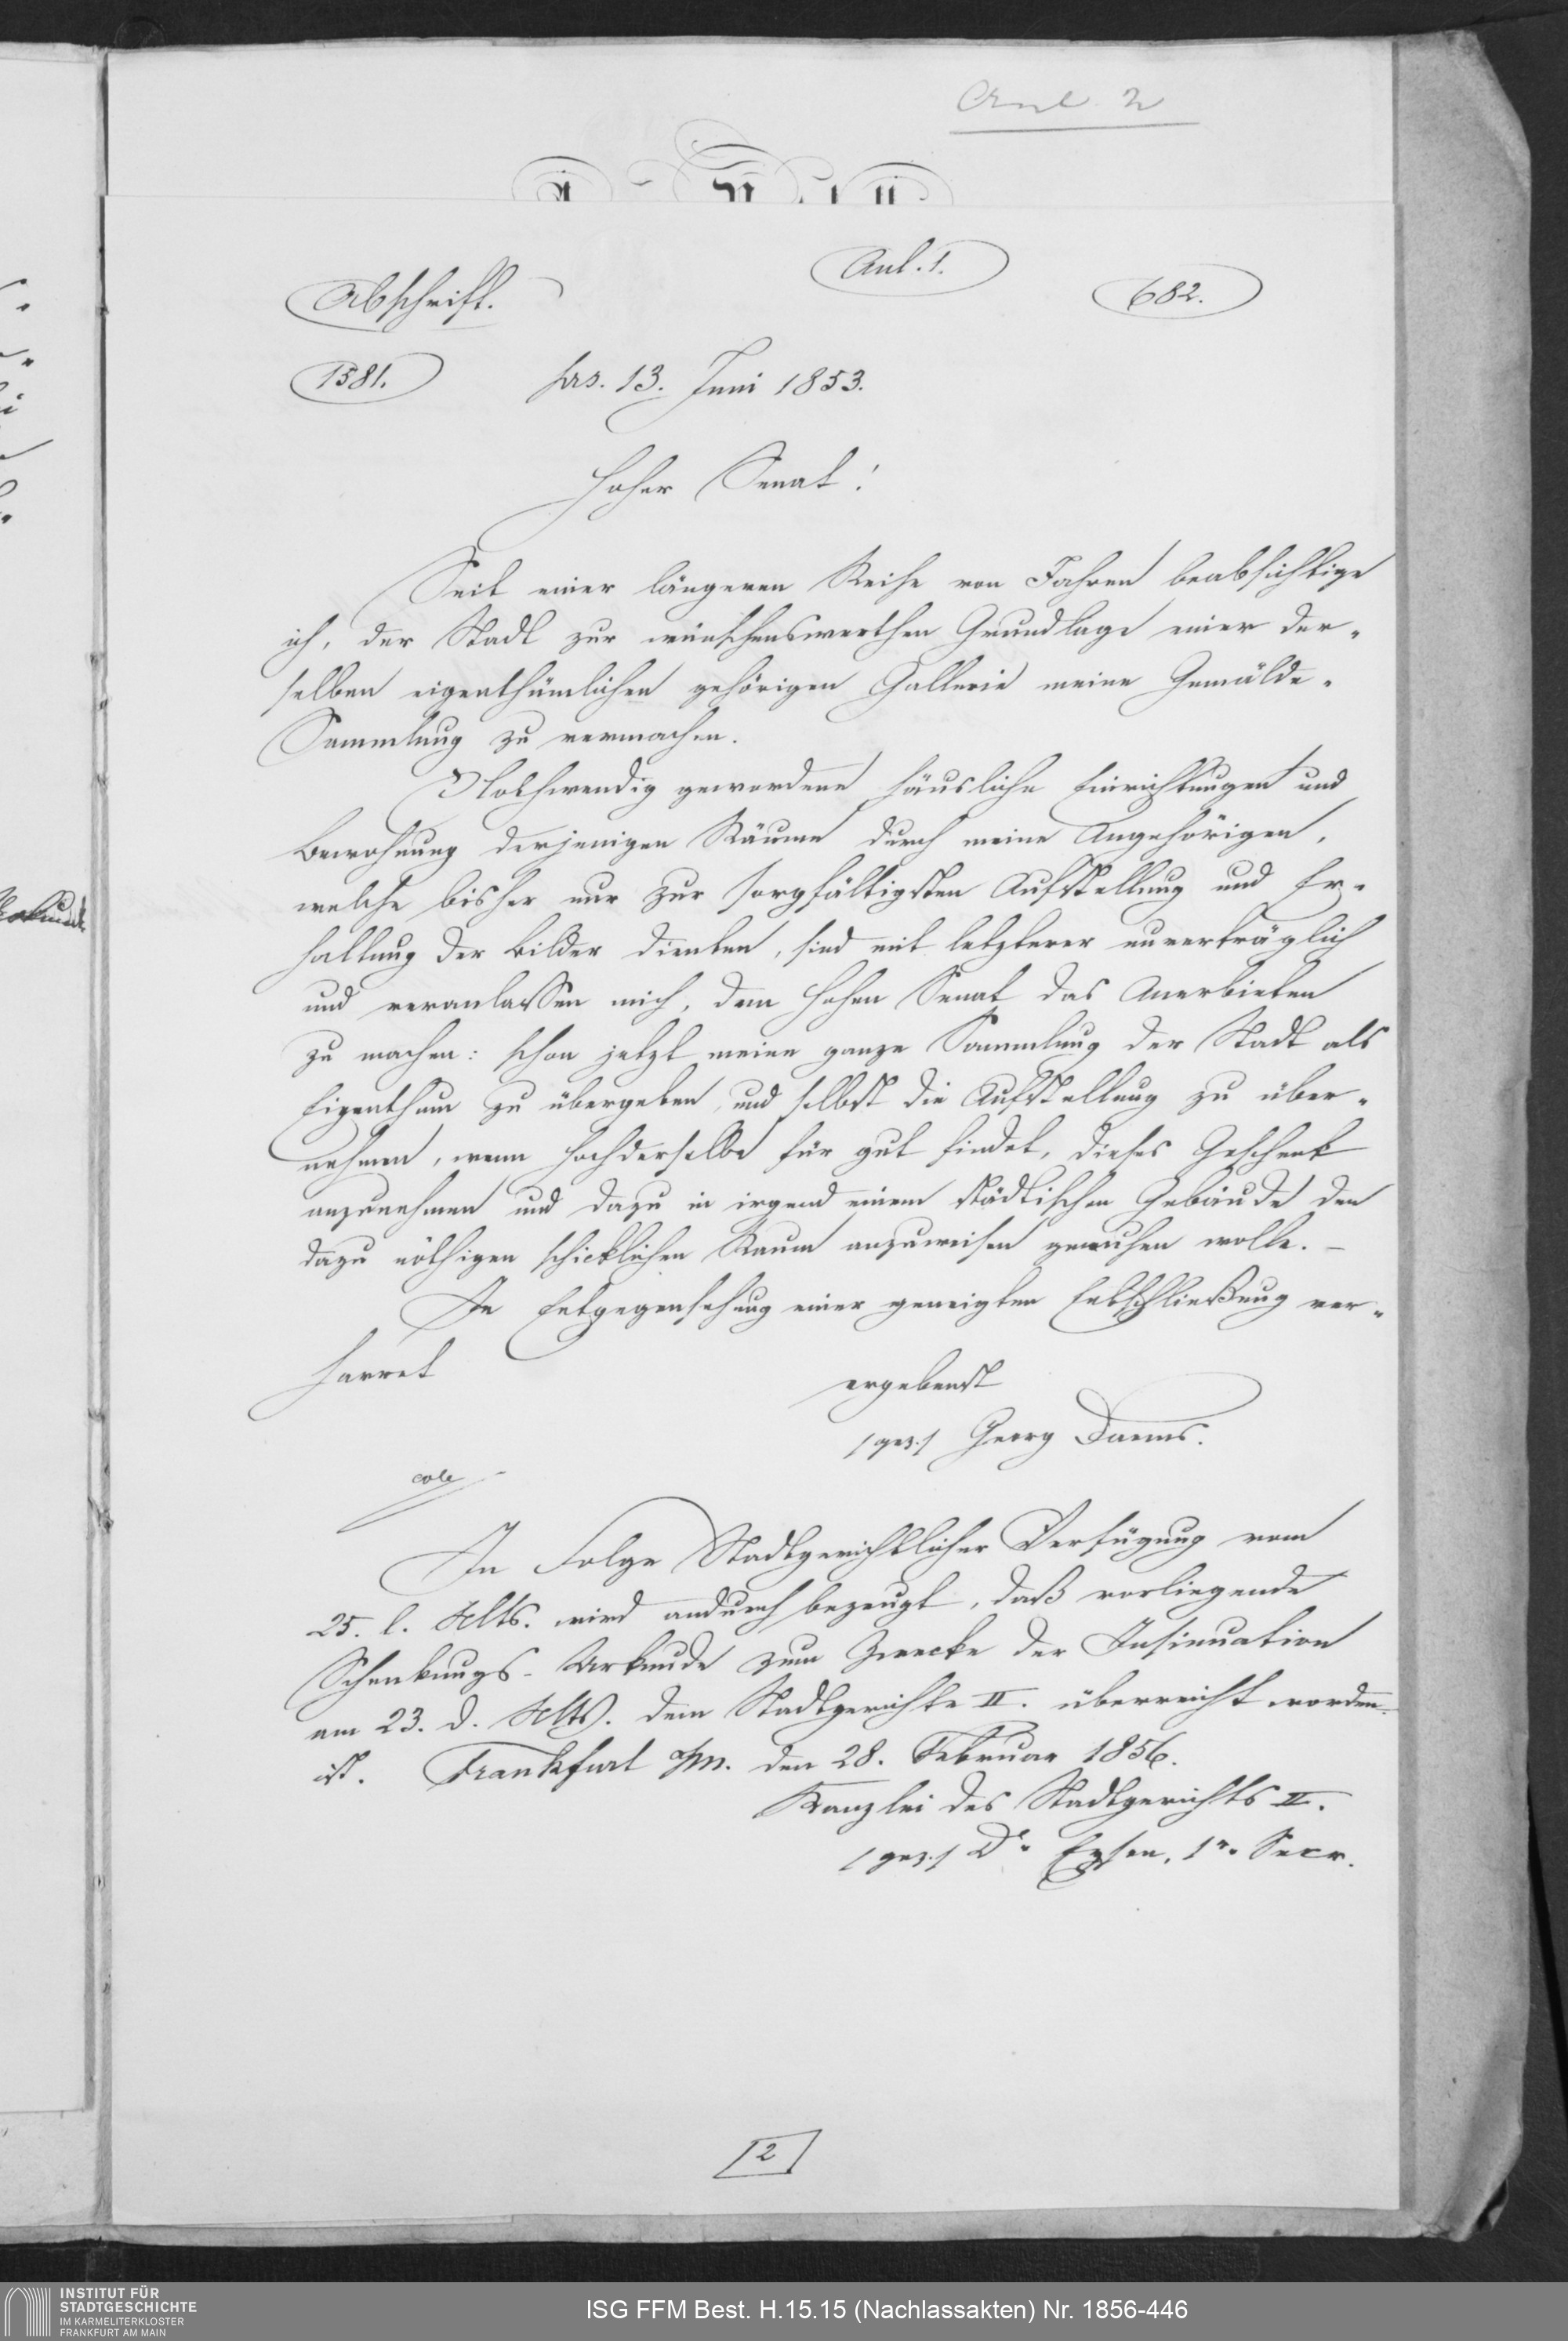 Anl. 2
Anl. 1.
Abschrift.
682.
1581.
prs. 13. Juni 1853.
Hoher Senat!
Seit einer längeren Reihe von Jahren beabsichtige
ich, der Stadt zur wünschenswerthen Grundlage einer der-
selben eigenthümlichen gehörigen Gallerie meine Gemälde-
Sammlung zu vermachen.
Nothwendig gewordene häusliche Einrichtungen und
Bewohnung derjenigen Räume durch meine Angehörigen,
welche bisher nur zur sorgfältigsten Aufstellung und Er-
haltung der Bilder dienten, sind mit letzterer unverträglich
und veranlassen mich, dem Hohen Senat das Anerbieten
zu machen: schon jetzt meine ganze Sammlung der Stadt als
Eigenthum zu übergeben, und selbst die Aufstellung zu über-
nehmen, wenn Hochderselbe für gut findet, dieses Geschenk
anzunehmen und dazu in irgend einem städtischen Gebäude den
dazu nöthigen schicklichen Raum anzuweisen geruhen wolle. –
In Entgegensehung einer geneigten Entschließung ver-
harret
ergebenst
/gez./ Georg Daems.
cole
In Folge Stadtgerichtlicher Verfügung vom
25. l. Mts. wird andurch bezeugt, daß vorliegende
Schenkungs-Urkunde zum Zwecke der Insinuation
am 23. d. Mts. dem Stadtgerichte II. überreicht worden
ist. Frankfurt a/m. den 28. Februar 1856.
Kanzlei des Stadtgerichts II.
/gez./ Dr. Eysen, 1r. Secr.
2
INSTITUT FÜR
STADTGESCHICHTE
IM KARMELITERKLOSTER
FRANKFURT AM MAIN
ISG FFM Best. H.15.15 (Nachlassakten) Nr. 1856-446